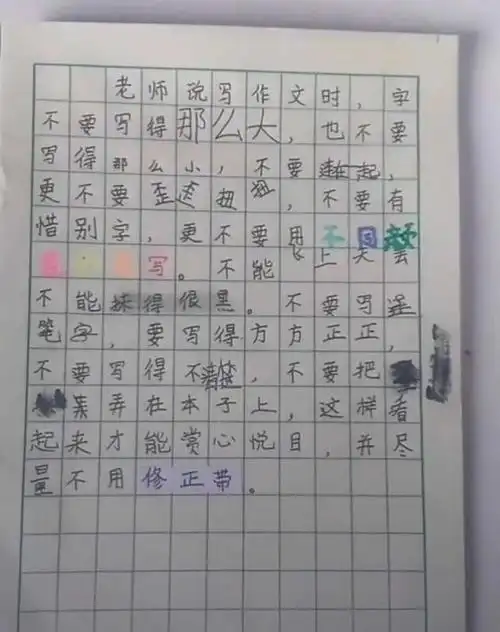 老师说写作文时，字
不要写得那么大，也不要
写得那么小，不要连在一起，
更不要歪歪扭扭，不要有
惜别字，更不要用不同颜
色的笔写。不能飞上天去
不能抹得很黑。不要写连
笔字，要写得方方正正，
不要写得不清楚，不要把
墨弄在本子上，这样看
起来才能赏心悦目，并尽
量不用修正带。